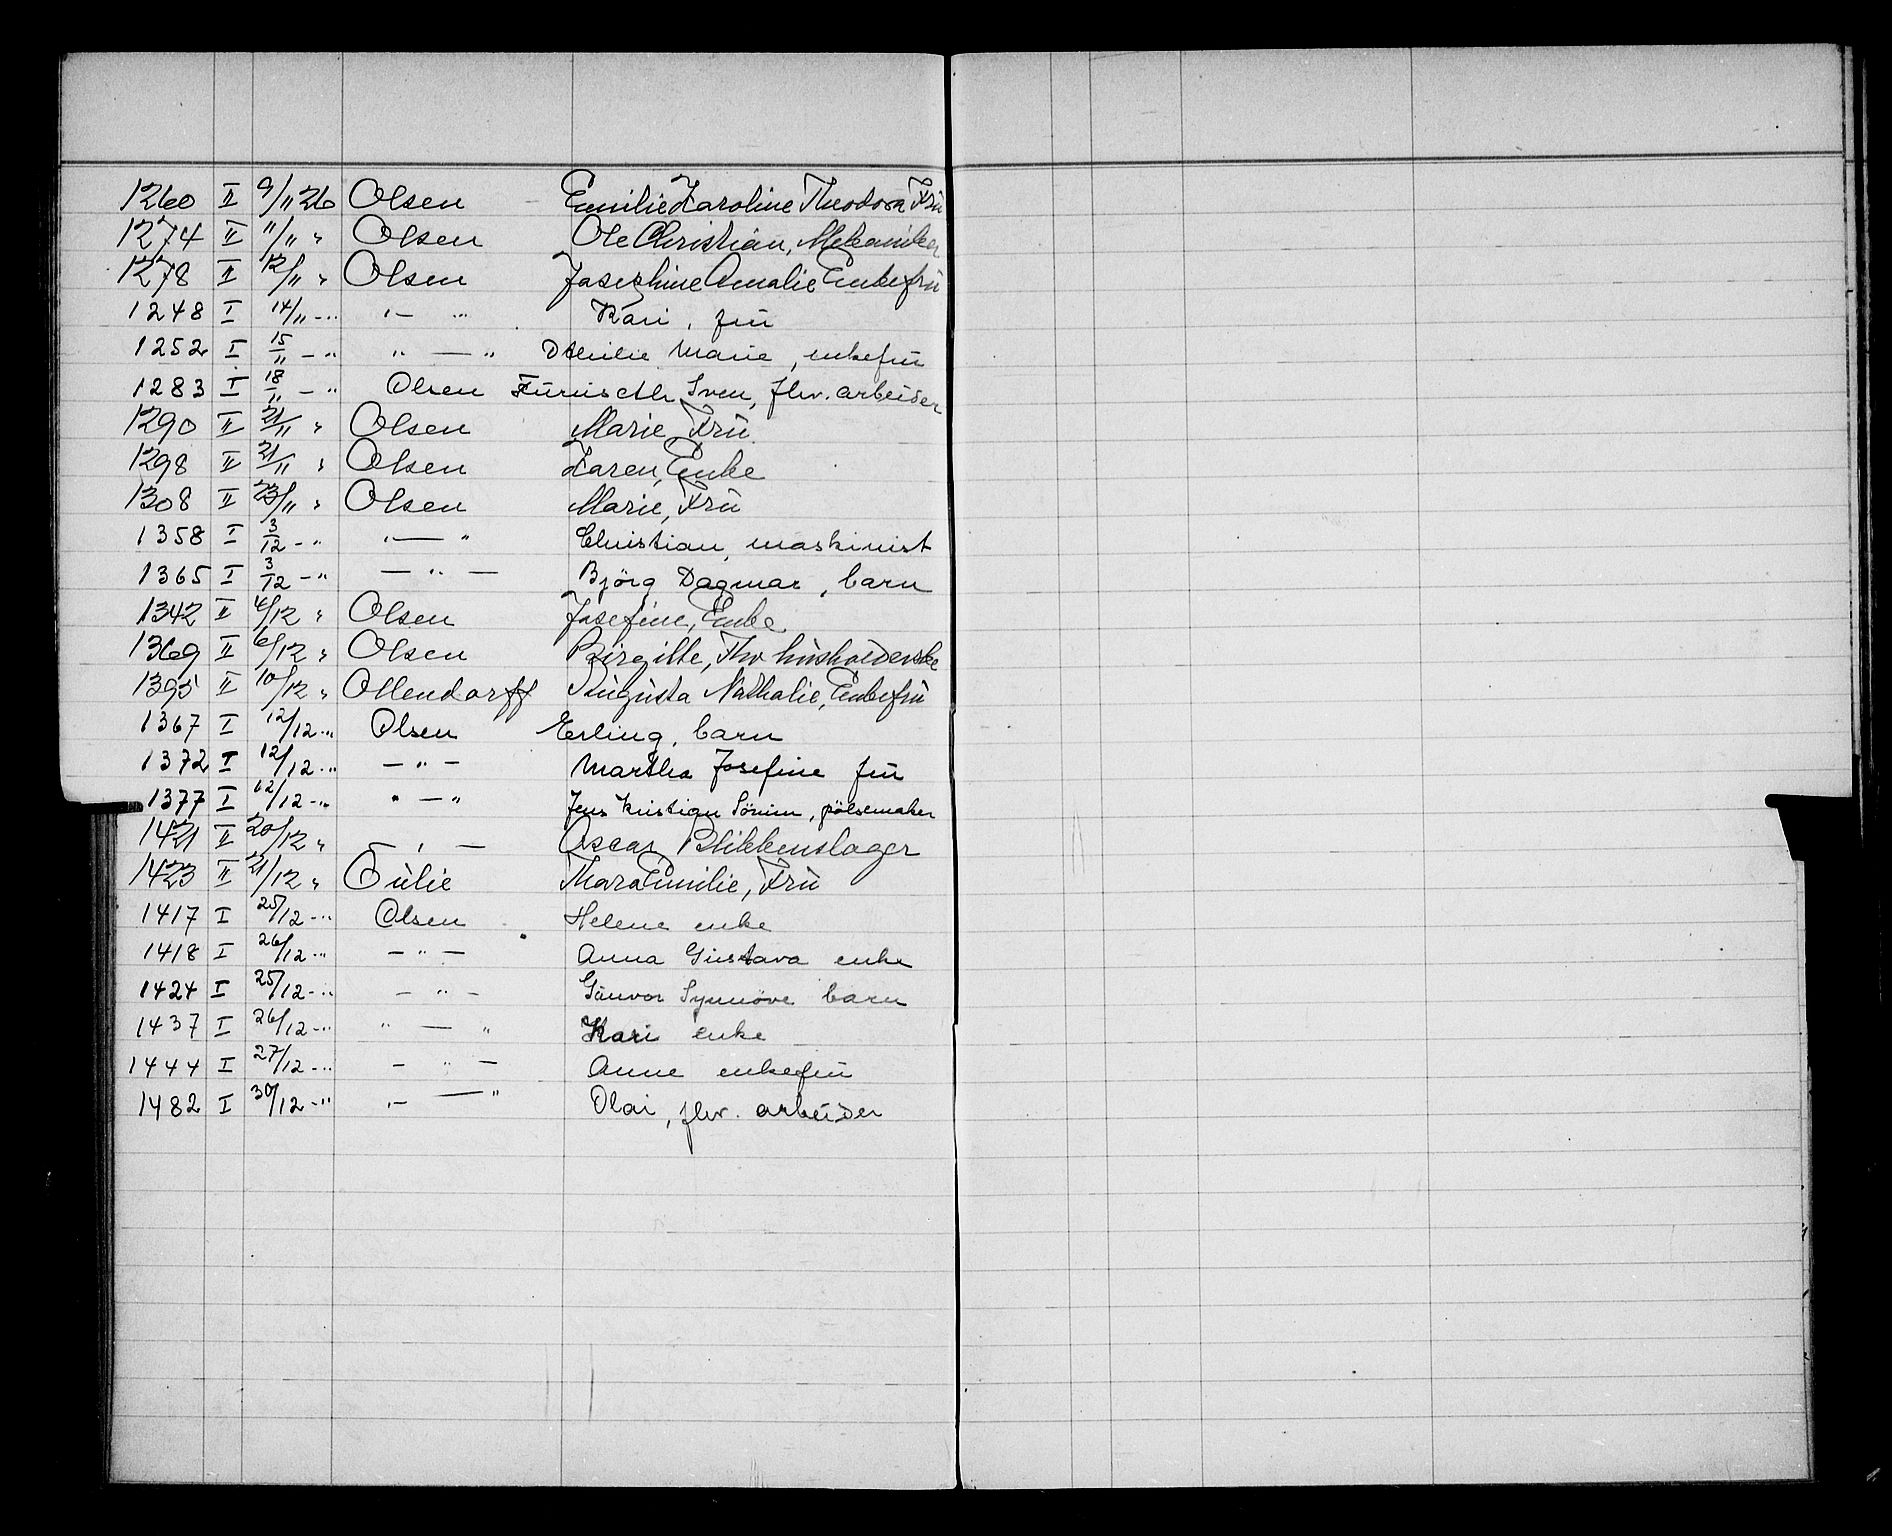 1260 II 9/11 26 Olsen Emilie Karoline Theodora Fru
1274 II 11/11 " Olsen Ole Christian, Mekaniker
1278 II 12/11 " Olsen Josephine Amalie Enkefru
1248 I 14/11 - " " - " Kari, fru
1252 I 15/11 - " " — " Othilie Marie, enkefru
1283 I 18/11 - " Olsen Furuseth Sven, fhv. arbeider
1290 II 21/11 " Olsen Marie, Fru
1298 II 21/11 " Olsen Karen, Enke
1308 II 23/11 " Olsen Marie, Fru
1358 I 3/12 - " " — " Christian, maskinist
1365 I 3/12 - " — " — Bjørg Dagmar, barn
1342 II 4/12 " Olsen Josefine, Enke
1369 II 6/12 " Olsen Birgitte, Fhv husholderske
1395 II 10/12 " Ollendorff Augusta Nathalie, Enkefru
1367 I 12/12 - " Olsen Erling, barn
1372 I 12/12 - " — " — Martha Josefine fru
1377 I 12/12 - " " — " Jens Kristian, pölsemaker
1421 II 20/12 " — " — Oscar, Blikkenslager
1423 II 21/12 " Oulie Thora Emilie, Fru
1417 I 25/12 - " Olsen Helene enke
1418 I 26/12 - " — " — Anna Gustava enke
1424 I 25/12 - " — " — Gunvor Synnøve barn
1437 I 26/12 - " " — " Kari enke
1444 I 27/12 - " — " — Anne enkefru
1482 I 30/12 - " " — " Olai, fhv. arbeider